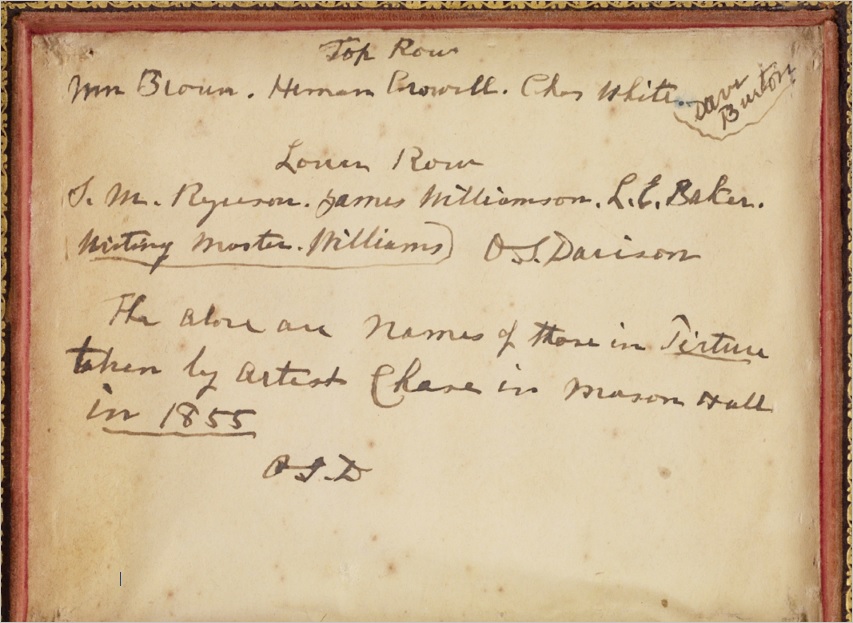 Top Row
Wm Brown. Heman Crowell. Chas White. Dave Burton
Lower Row
S. M. Ryerson. James Williamson. L. E. Baker.
(Writing Master. Williams) O S. Davison
The above are names of those in Picture
taken by artist Chase in Mason Hall
in 1855
O S. D